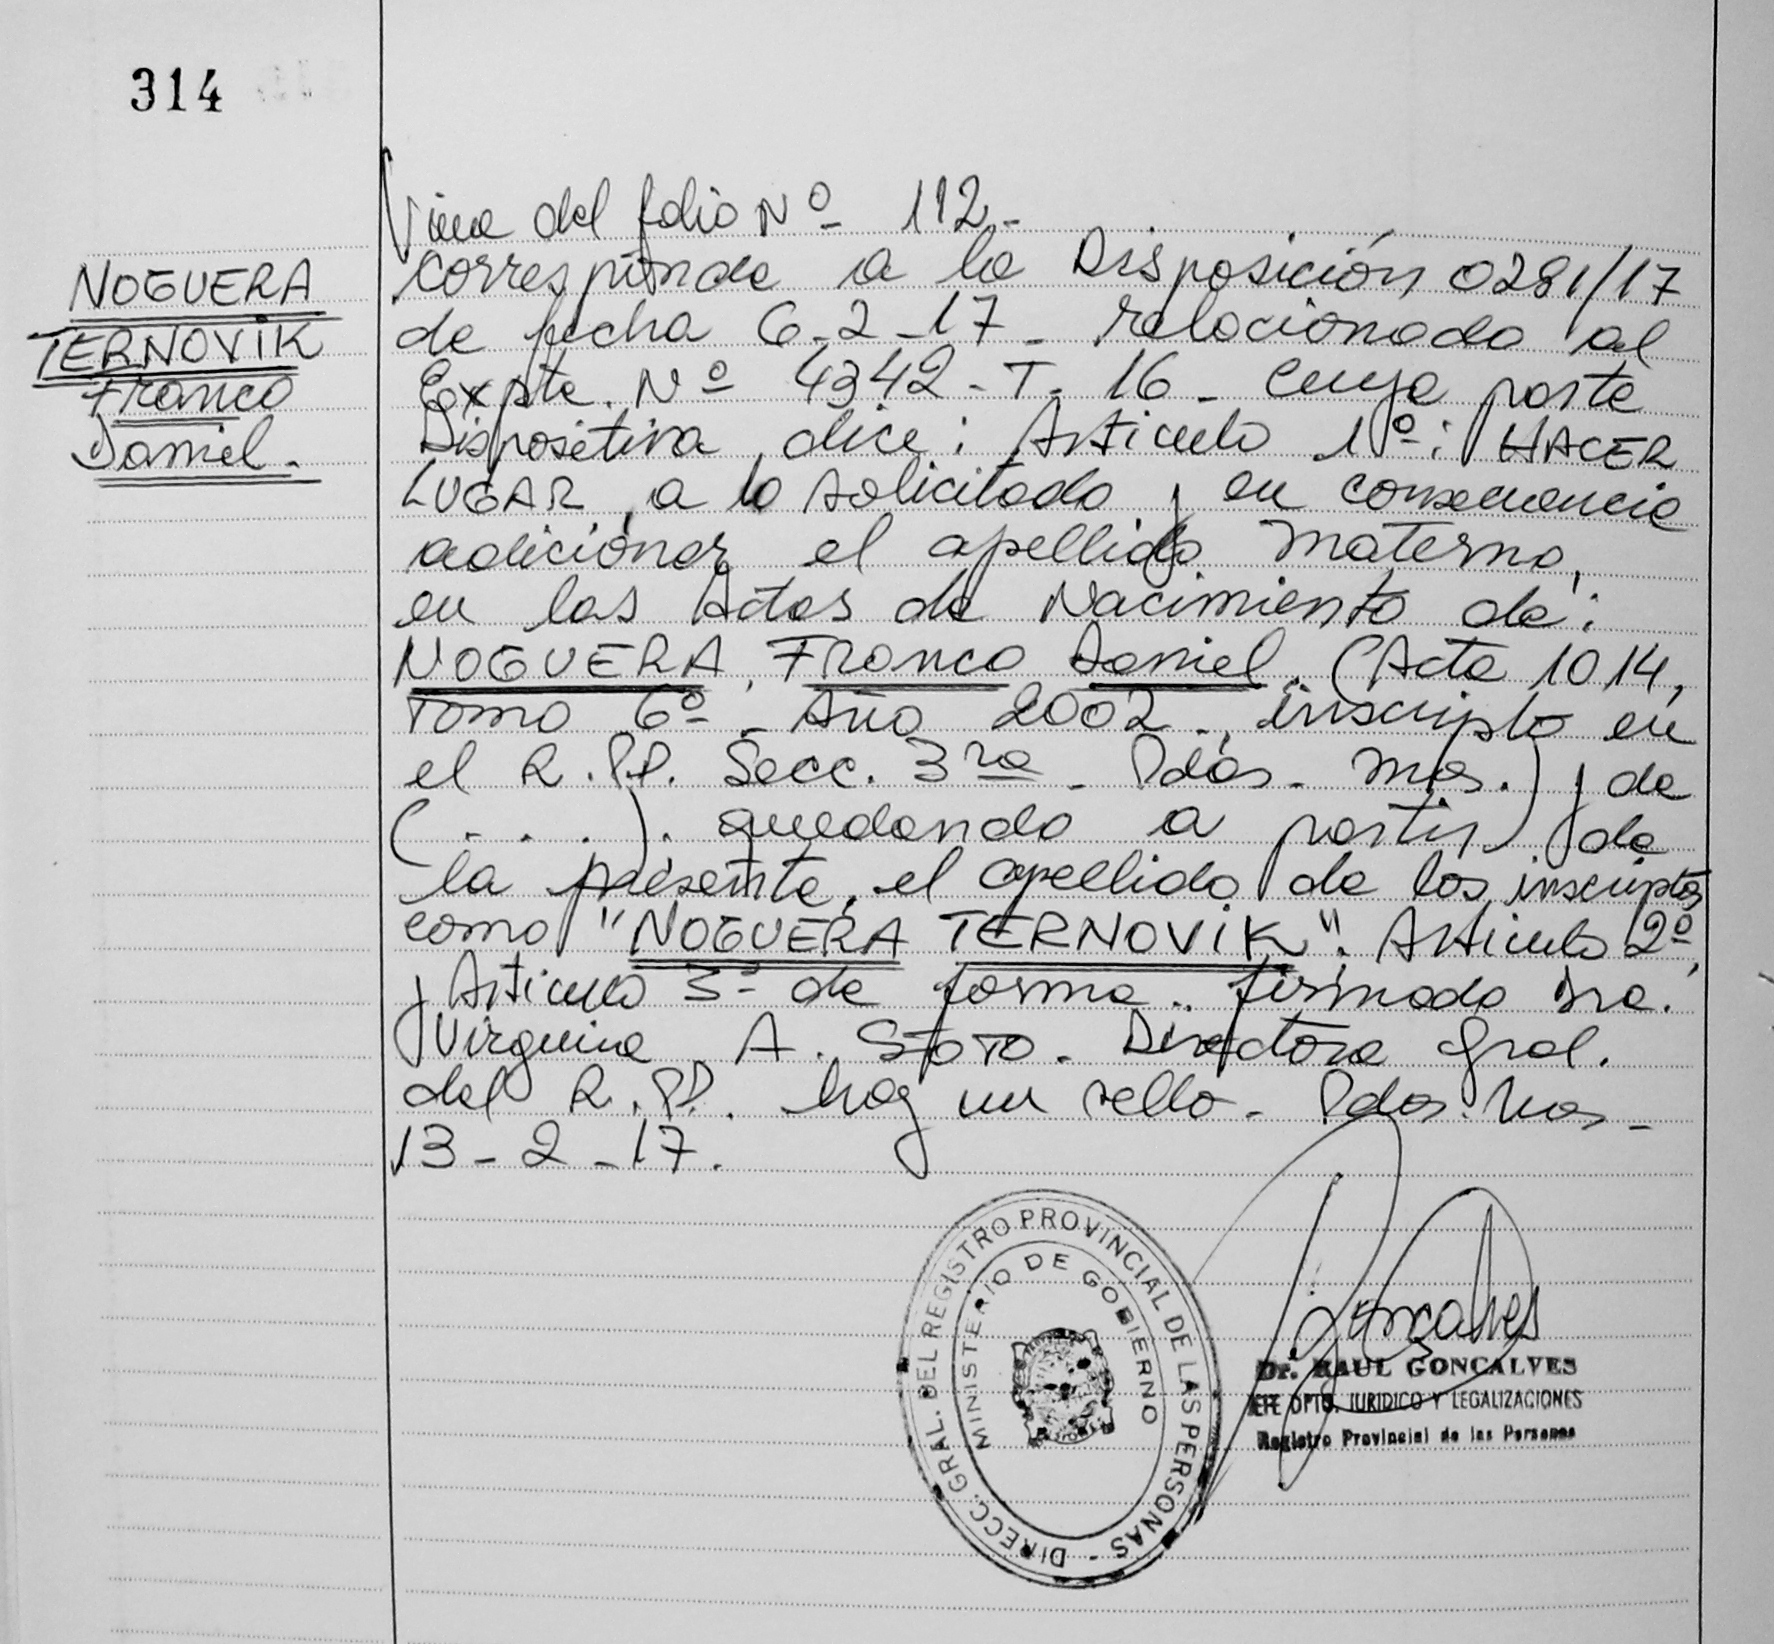 314
NOGUERA
TERNOVIK
Franco
Daniel.
Viene del folio Nº 112-
corresponde a la Disposición 0281/17
de fecha 6-2-17- relacionado al
Expte. Nº 4342-T-16- cuya parte
Dispositiva dice: Articulo 1º: HACER
LUGAR, a lo solicitado y en consecuencia
adicionar el apellido materno,
en las Actas de Nacimiento de:
NOGUERA, Franco Daniel, (Acta 1014,
Tomo 6º- Año 2002, inscripto en
el R.P.P. Secc. 3ra- Pdas- Mnes.) y de
(....). quedando a partir de
la presente, el apellido de los inscriptos
como "NOGUERA TERNOVIK". Articulo 2º,
y Articulo 3º de forma. firmado Dra.
Virginia A. Soto. Directora Gral.
del R.P.P. hay un sello- Pdas. Mnes-
13-2-17.
DIRECC. GRAL. DEL REGISTRO PROVINCIAL DE LAS PERSONAS -
MINISTERIO DE GOBIERNO
Goncalves
Dr. RAUL GONCALVES
JEFE DPTO. JURIDICO Y LEGALIZACIONES
Registro Provincial de las Personas